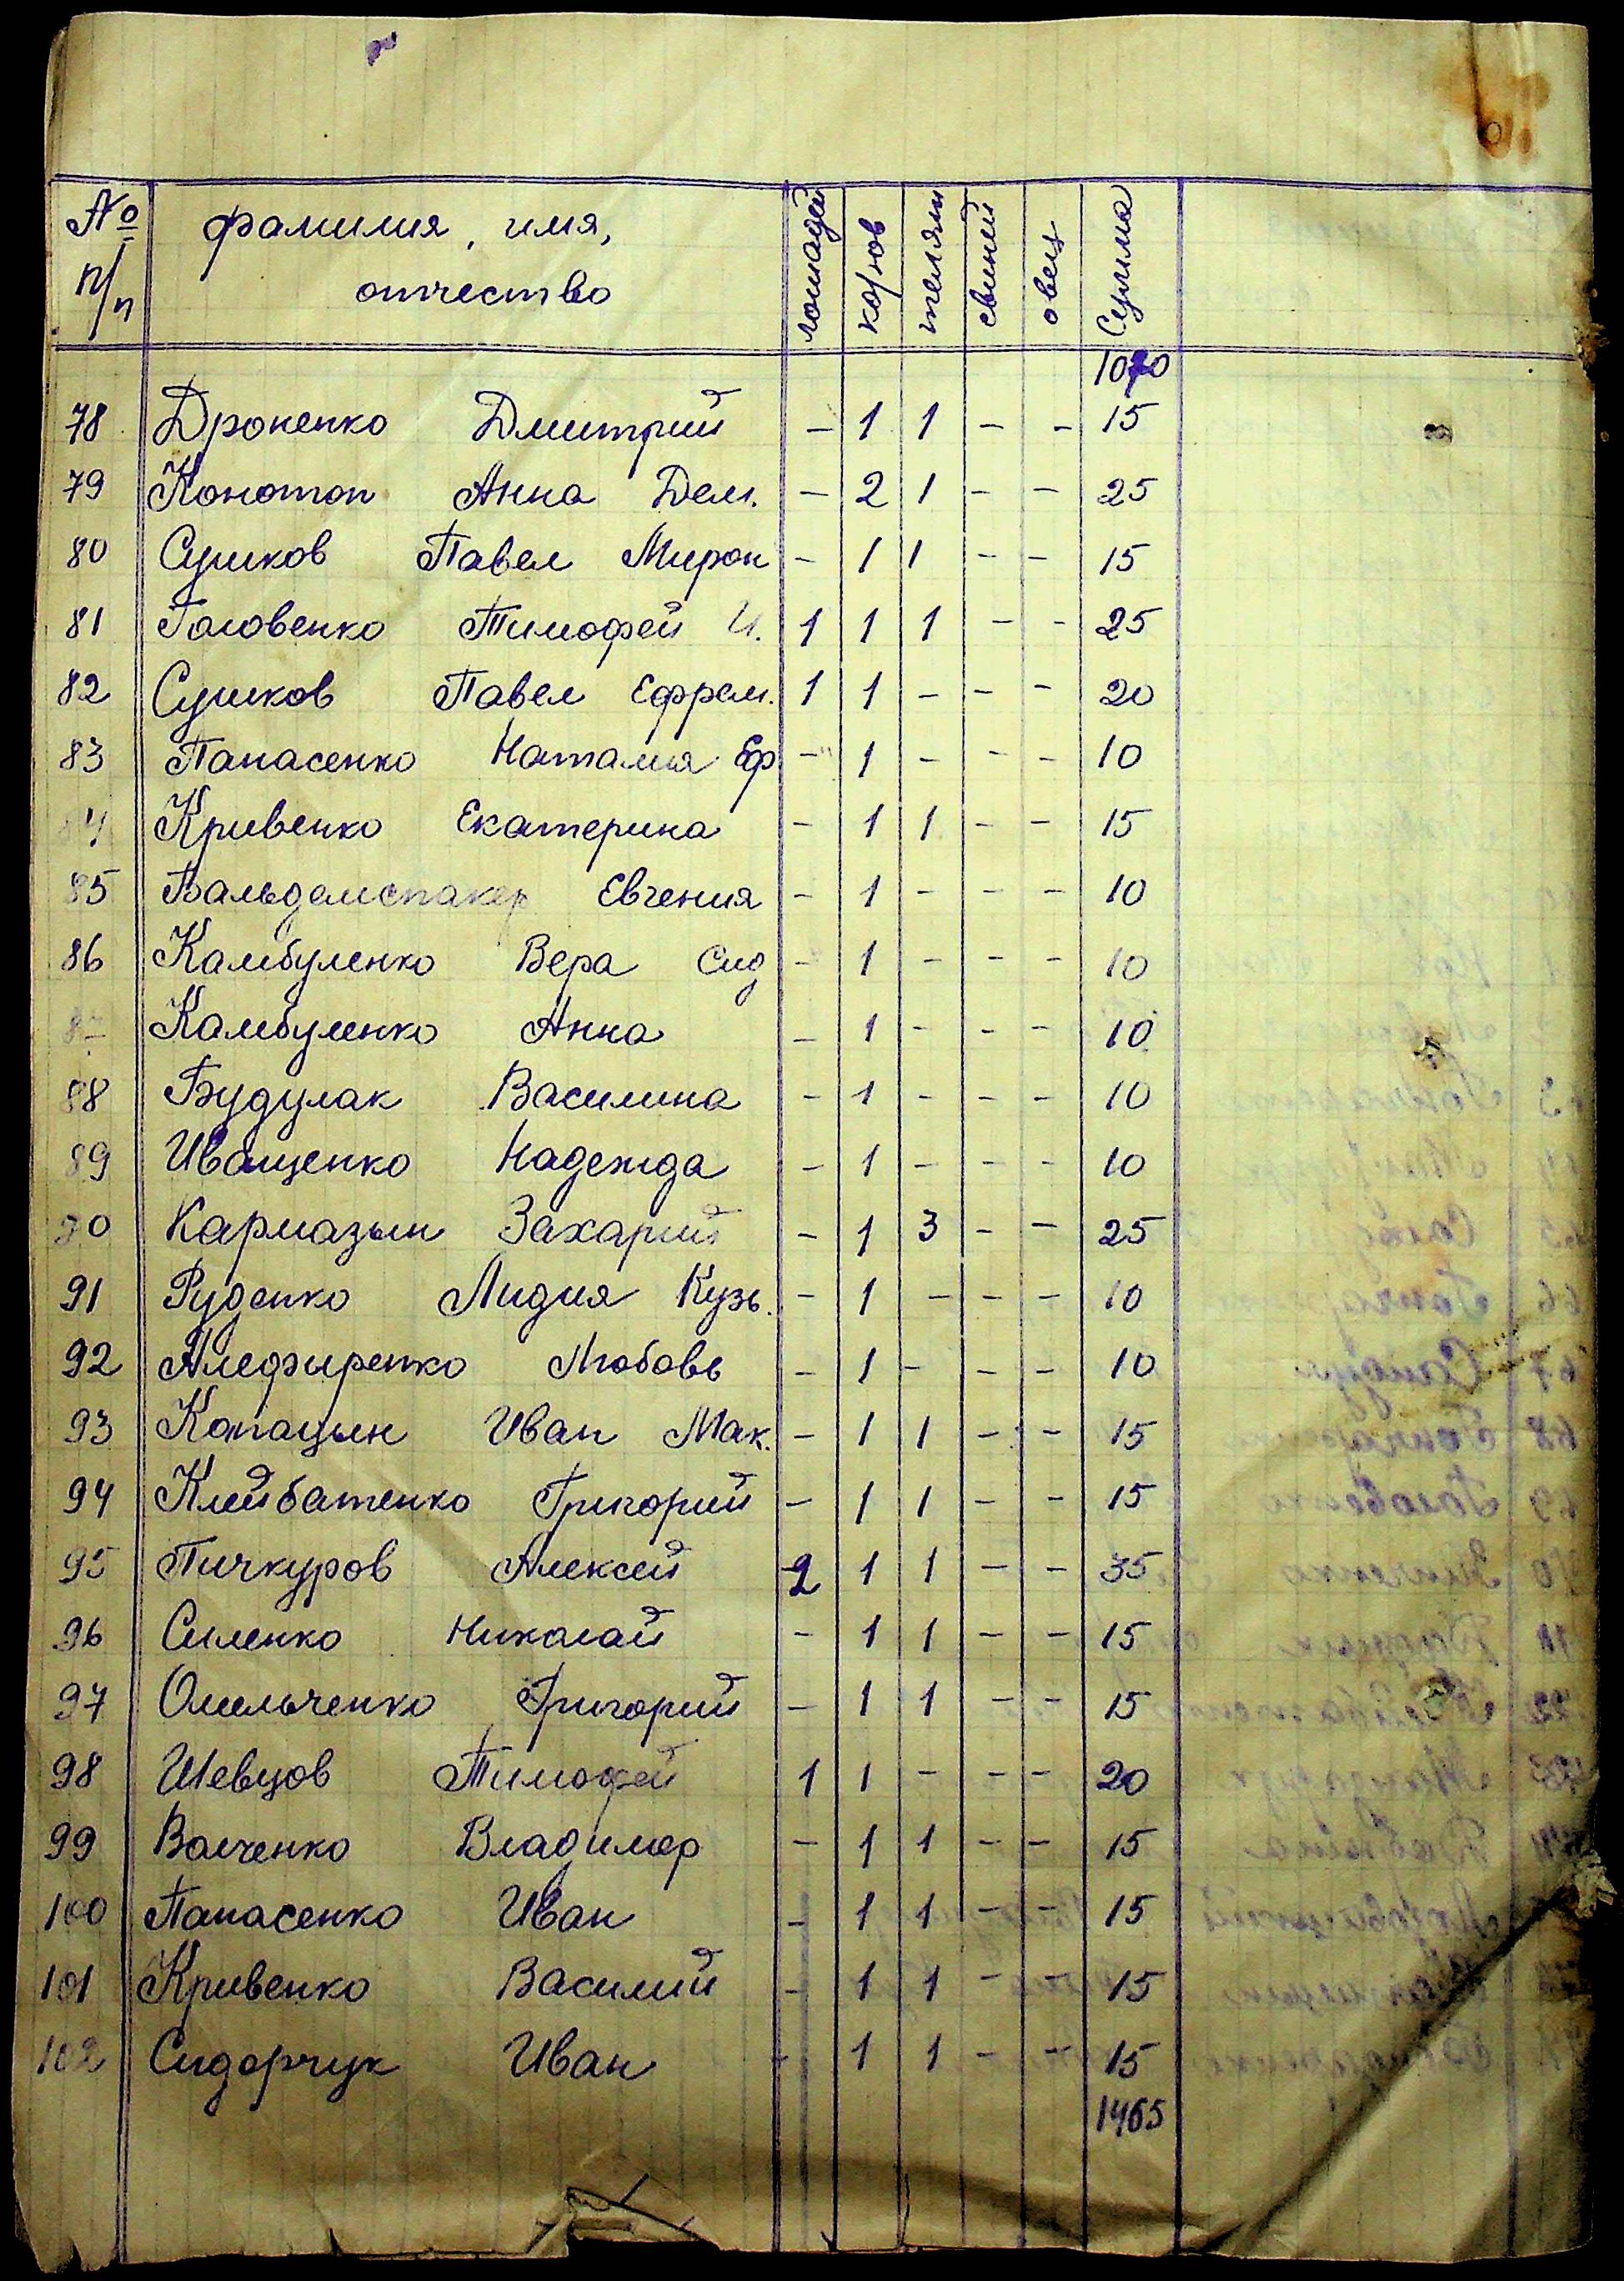 № п/п фамилия, имя, отчество лошадей коров телят свиней овец Сумма
1070
78 Дроненко Дмитрий - 1 1 - - 15
79 Конотоп Анна Дем. - 2 1 - - 25
80 Сушков Павел Мирон - 1 1 - - 15
81 Головенко Тимофей И. 1 1 1 - - 25
82 Сушков Павел Ефрем. 1 1 - - - 20
83 Панасенко Наталия Еф - 1 - - - 10
84 Кривенко Екатерина - 1 1 - - 15
85 Бальдемспакер Евгения - 1 - - - 10
86 Камбуленко Вера Сид - 1 - - - 10
87 Камбуленко Анна - 1 - - - 10
88 Будулак Василина - 1 - - - 10
89 Иващенко Надежда - 1 - - - 10
90 Кармазын Захарий - 1 3 - - 25
91 Руденко Лидия Кузь. - 1 - - - 10
92 Алефиренко Любовь - 1 - - - 10
93 Копацын Иван Мак. - 1 1 - - 15
94 Клейбатенко Григорий - 1 1 - - 15
95 Пичкуров Алексей 2 1 1 - - 35
96 Силенко Николай - 1 1 - - 15
97 Омельченко Григорий - 1 1 - - 15
98 Шевцов Тимофей 1 1 - - - 20
99 Валченко Владимер - 1 1 - - 15
100 Панасенко Иван - 1 1 - - 15
101 Кривенко Василий - 1 1 - - 15
102 Сидорчук Иван - 1 1 - - 15
1465